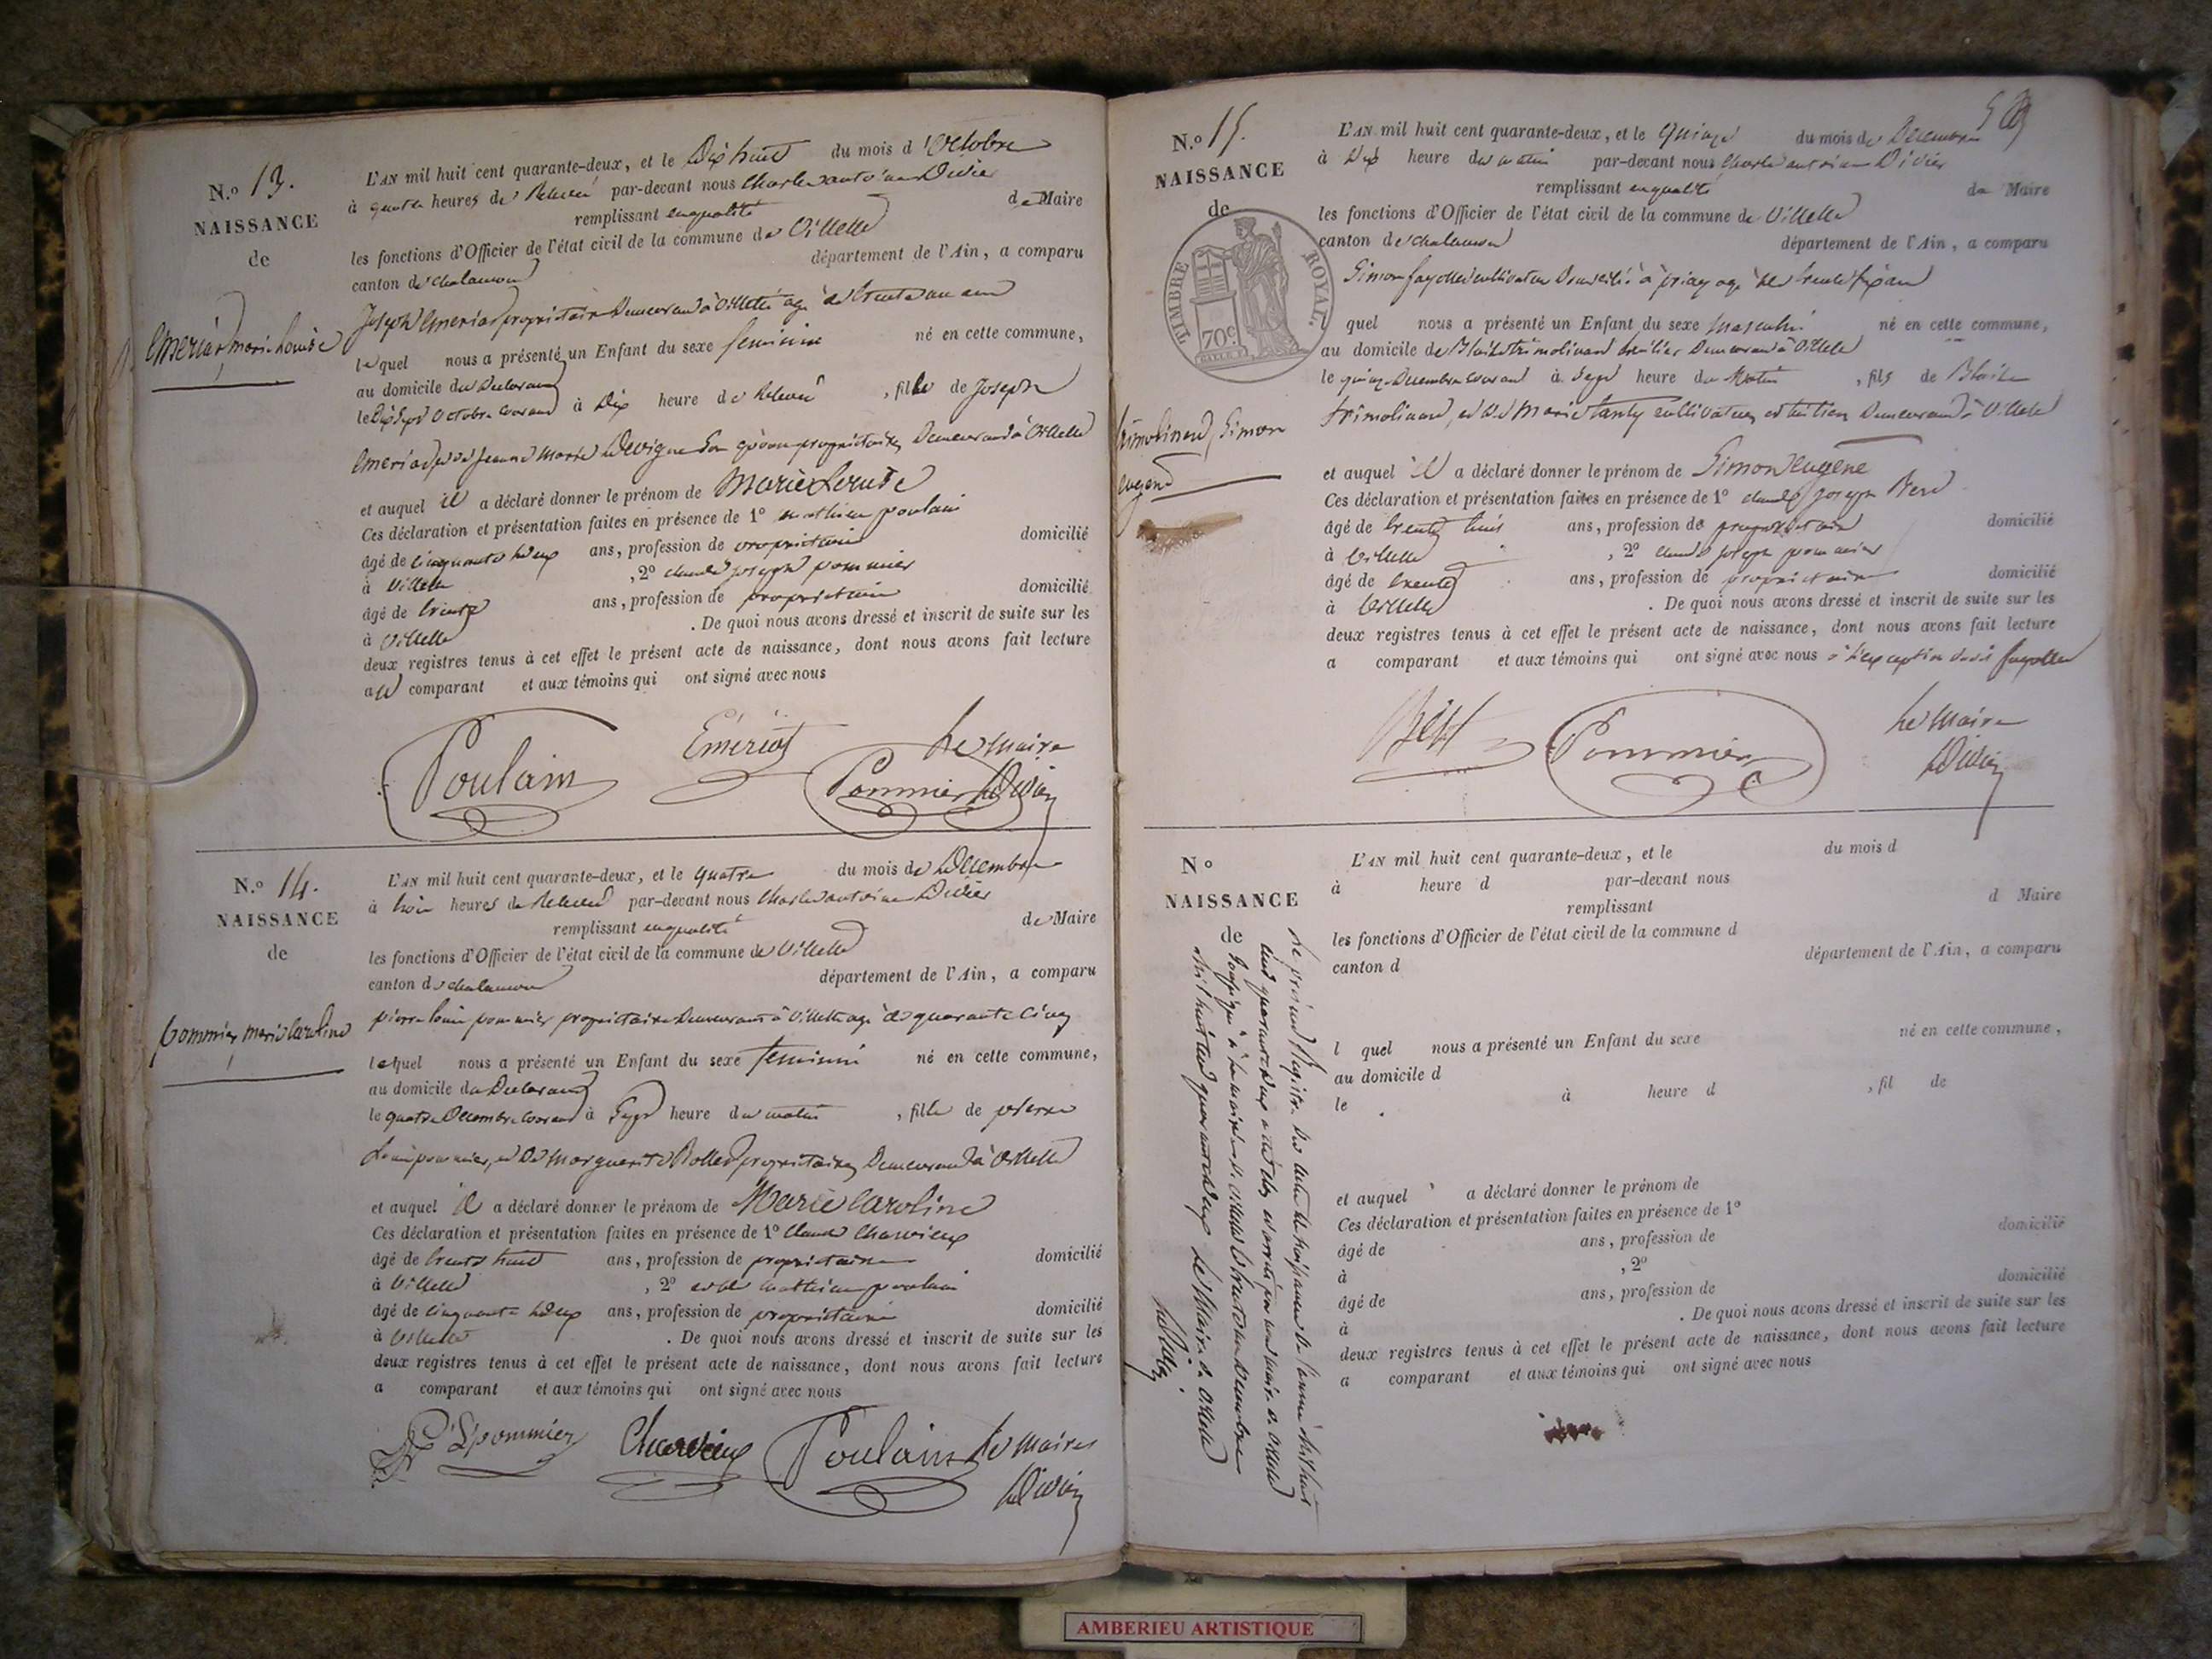 N.o 13.
NAISSANCE
de
Emeriat marie Louise
L'AN mil huit cent quarante-deux, et le Dix huit du mois d'Octobre
à quatre heures de Relevée par-devant nous Charles antoine Divier
remplissant en qualité de Maire
les fonctions d'Officier de l'état civil de la commune de Villette
canton de chalamont département de l'Ain, a comparu
Joseph Emeriat propriétaire Demeurant à Villette agé de trente un ans
lequel nous a présenté un Enfant du sexe feminin né en cette commune,
au domicile du Declarant
le Dix Sept Octobre courant à Dix heure de Relevée, fille de Joseph
Emeriat, et de Jeanne Marie propriétaires Demeurant à Villette
et auquel il a déclaré donner le prénom de Marie Louise
Ces déclaration et présentation faites en présence de 1o mathieu poulain
âgé de cinquante Deux ans, profession de propriétaire domicilié
à Villette, 2o claude joseph pommier
âgé de trente ans, profession de propriétaire domicilié
à Villette. De quoi nous avons dressé et inscrit de suite sur les
deux registres tenus à cet effet le présent acte de naissance, dont nous avons fait lecture
au comparant et aux témoins qui ont signé avec nous
Poulain Emériat Pommier Le Maire
Divier
N.o 14.
NAISSANCE
de
pommier marie Caroline
L'AN mil huit cent quarante-deux, et le quatre du mois de Decembre
à trois heures de Relevée par-devant nous Charles antoine Divier
remplissant en qualité de Maire
les fonctions d'Officier de l'état civil de la commune de Villette
canton de chalamont département de l'Ain, a comparu
pierre louis pommier propriétaire Demeurant à Villette agé de quarante Cinq
lequel nous a présenté un Enfant du sexe feminin né en cette commune,
au domicile du Declarant
le quatre Decembre courant à Sept heure du matin, fille de pierre
Louis pommier, et De Marguerite Rollet propriétaires Demeurant à Villette
et auquel il a déclaré donner le prénom de Marie Caroline
Ces déclaration et présentation faites en présence de 1o Claude Charvieux
âgé de trente huit ans, profession de propriétaire domicilié
à Villette, 2o et de mathieu poulain
âgé de cinquante Deux ans, profession de propriétaire domicilié
à Villette. De quoi nous avons dressé et inscrit de suite sur les
deux registres tenus à cet effet le présent acte de naissance, dont nous avons fait lecture
a comparant et aux témoins qui ont signé avec nous
P L pommier Charvieux Poulain Le Maire
Divier
N.o 15.
NAISSANCE
de
TIMBRE ROYAL.
70c
trimolinard, Simon
eugene
L'AN mil huit cent quarante-deux, et le quinze du mois de Decembre
à Dix heure du matin par-devant nous Charles antoine Divier
remplissant en qualité de Maire
les fonctions d'Officier de l'état civil de la commune de Villette
canton de chalamont département de l'Ain, a comparu
Simon fayolle cultivateur Domicilié à priay agé de trente six ans
l quel nous a présenté un Enfant du sexe masculin né en cette commune,
au domicile de Blaise trimolinard Demeurant à Villette
le quinze Decembre courant à Sept heure du Matin, fils de Blaise
trimolinard, et de Marie tanty cultivateurs Demeurant à Villette
et auquel il a déclaré donner le prénom de Simon eugène
Ces déclaration et présentation faites en présence de 1o claude joseph
âgé de trente huit ans, profession de propriétaire domicilié
à Villette, 2o claude joseph pommier
âgé de trente ans, profession de propriétaire domicilié
à Villette. De quoi nous avons dressé et inscrit de suite sur les
deux registres tenus à cet effet le présent acte de naissance, dont nous avons fait lecture
a comparant et aux témoins qui ont signé avec nous à l'exception dudit fayolle
Pommier Le Maire
Divier
N o
NAISSANCE
de
L'AN mil huit cent quarante-deux, et le du mois d
à heure d par-devant nous
remplissant d Maire
les fonctions d'Officier de l'état civil de la commune d
canton d département de l'Ain, a comparu
l quel nous a présenté un Enfant du sexe né en cette commune,
au domicile d
le à heure d, fil de
et auquel a déclaré donner le prénom de
Ces déclaration et présentation faites en présence de 1o
âgé de ans, profession de domicilié
à, 2o
âgé de ans, profession de domicilié
à. De quoi nous avons dressé et inscrit de suite sur les
deux registres tenus à cet effet le présent acte de naissance, dont nous avons fait lecture
a comparant et aux témoins qui ont signé avec nous
Le présent Registre des actes de naissances de l'année mil huit
cent quarante deux a été clos et arrêté par nous maire de Villette
à la mairie de Villette le trente un Decembre
mil huit cent quarante Deux Le Maire de Villette
Divier
AMBERIEU ARTISTIQUE